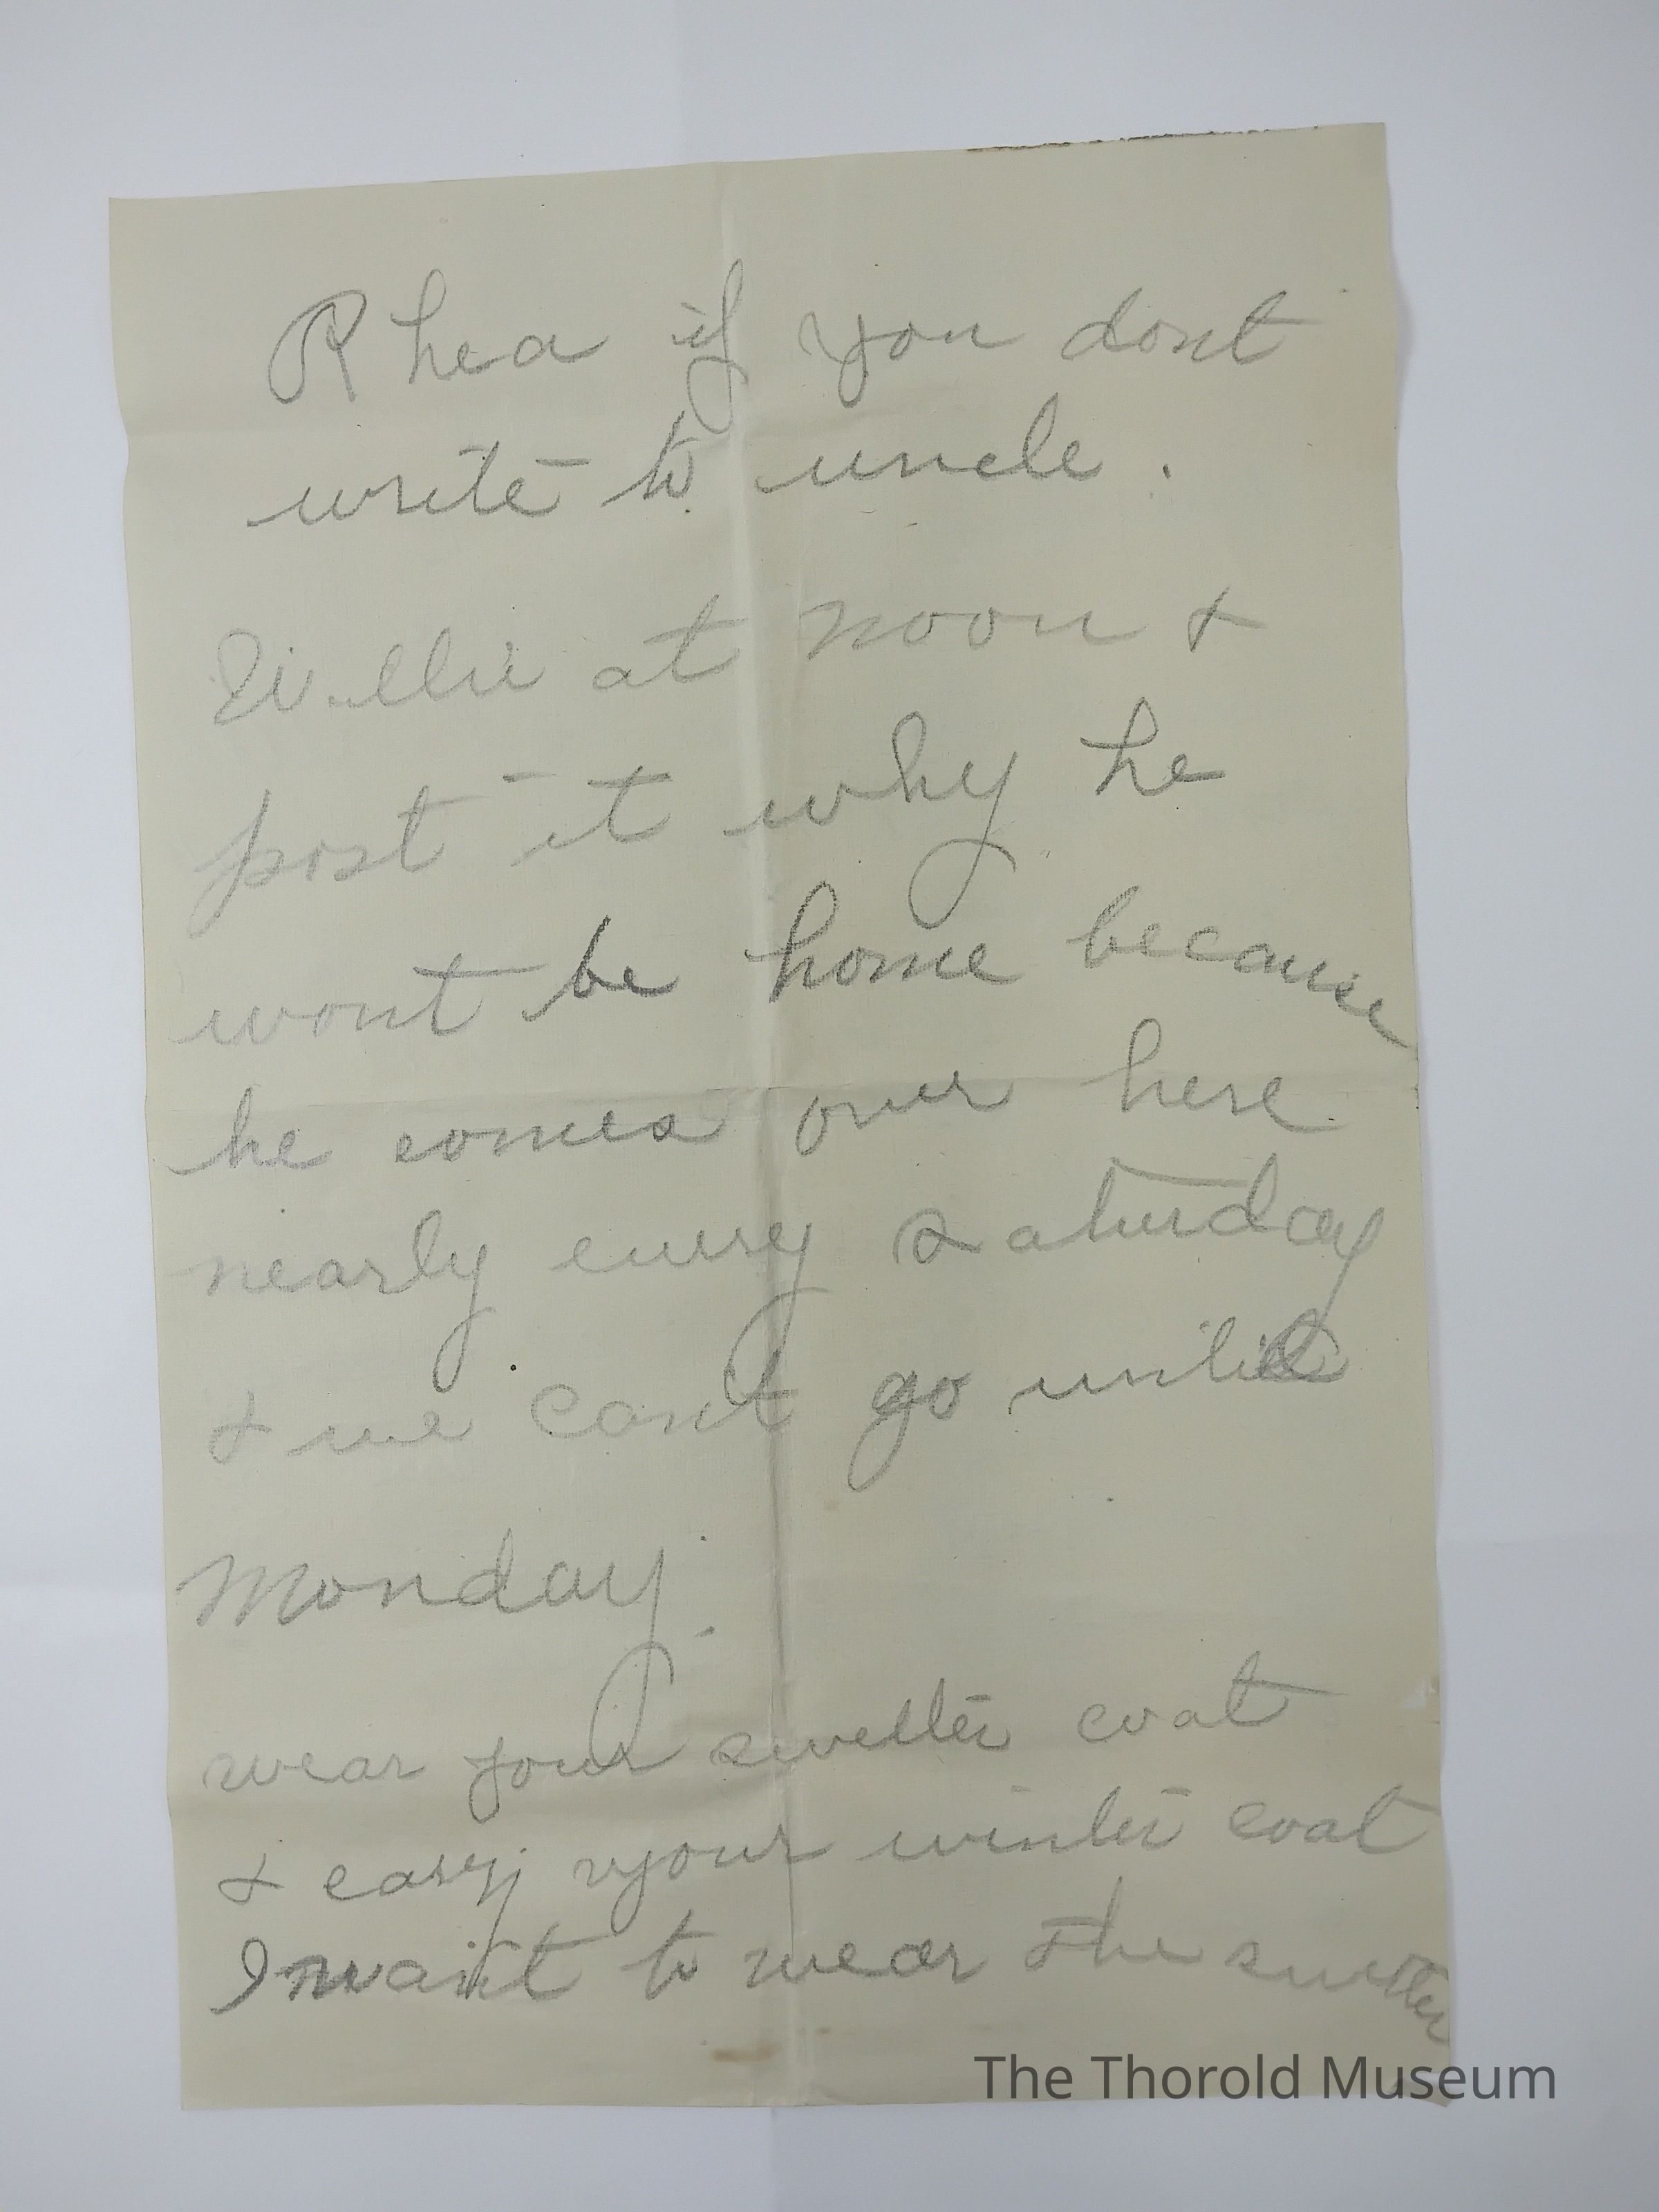 Rhea if you dont
write to uncle.
Willie at noon &
post it why he
wont be home because
he comes over here
nearly every Saturday
& we cant go until
Monday.
wear your swetter coat
& carry your winter coat
I want to wear the swetter
The Thorold Museum